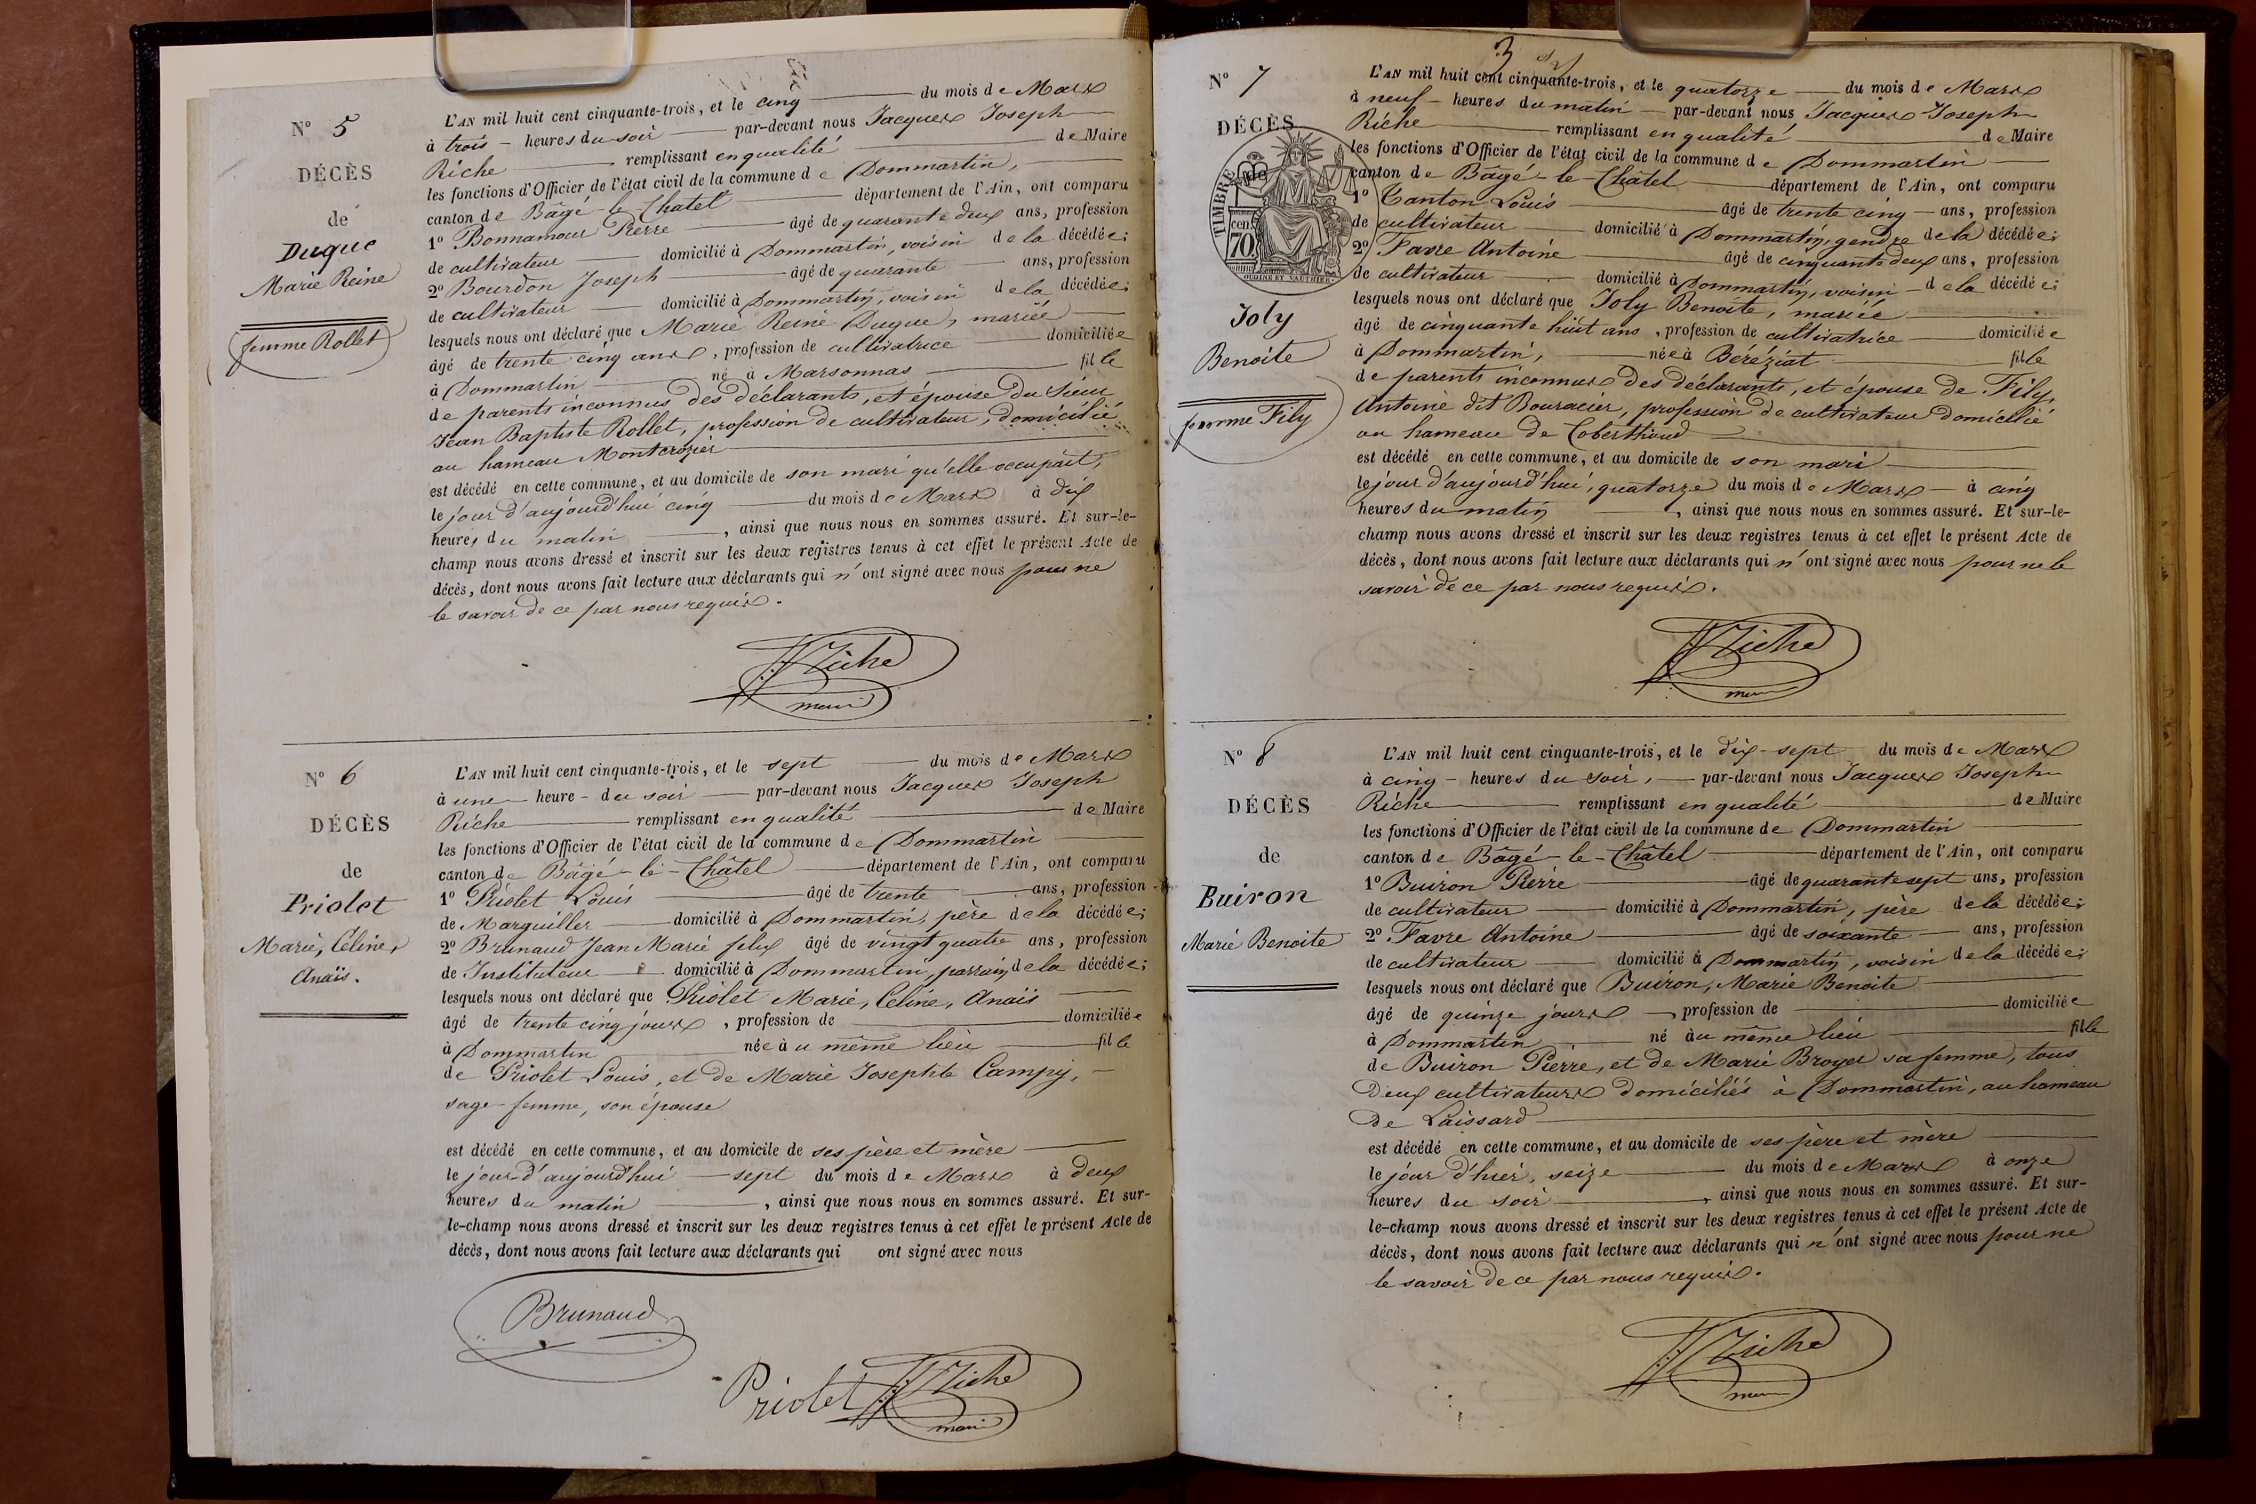 N° 5
DÉCÈS
de
Duque
Marie Reine
femme Rollet
L'AN mil huit cent cinquante-trois, et le cinq du mois de Mars
à trois heures du soir par-devant nous Jacques Joseph
Riche remplissant en qualité de Maire
les fonctions d'Officier de l'état civil de la commune de Dommartin,
canton de Bâgé-le-Châtel département de l'Ain, ont comparu
1° Bonnamour Pierre âgé de quarante deux ans, profession
de cultivateur domicilié à Dommartin, voisin de la décédée;
2° Bourdon Joseph âgé de quarante ans, profession
de cultivateur domicilié à Dommartin, voisin de la décédée;
lesquels nous ont déclaré que Marie Reine Duque, mariée
âgé de trente cinq ans, profession de cultivatrice domiciliée
à Dommartin né à Marsonnas fille
de parents inconnus des déclarants, et épouse du Sieur
Jean Baptiste Rollet, profession de cultivateur, domicilié
au hameau Montcrozier
est décédé en cette commune, et au domicile de son mari qu'elle occupait,
le jour d'aujourd'hui cinq du mois de Mars à dix
heures du matin, ainsi que nous nous en sommes assuré. Et sur-le-
champ nous avons dressé et inscrit sur les deux registres tenus à cet effet le présent Acte de
décès, dont nous avons fait lecture aux déclarants qui n'ont signé avec nous pour ne
le savoir de ce par nous requis.
Riche
maire
N° 6
DÉCÈS
de
Priolet
Marie, Céline,
Anaïs.
L'AN mil huit cent cinquante-trois, et le sept du mois de Mars
à une heure du soir par-devant nous Jacques Joseph
Riche remplissant en qualité de Maire
les fonctions d'Officier de l'état civil de la commune de Dommartin
canton de Bâgé-le-Châtel département de l'Ain, ont comparu
1° Priolet Louis âgé de trente ans, profession
de Marguiller domicilié à Dommartin, père de la décédée;
2° Brunaud Jean Marie felix âgé de vingt quatre ans, profession
de Instituteur domicilié à Dommartin, parrain de la décédée;
lesquels nous ont déclaré que Priolet Marie, Céline, Anaïs
âgé de trente cinq jours, profession de domiciliée
à Dommartin née au même lieu fille
de Priolet Louis, et de Marie Josephte Campy,
sage-femme, son épouse
est décédé en cette commune, et au domicile de ses père et mère
le jour d'aujourd'hui sept du mois de Mars à deux
heures du matin, ainsi que nous nous en sommes assuré. Et sur-
le-champ nous avons dressé et inscrit sur les deux registres tenus à cet effet le présent Acte de
décès, dont nous avons fait lecture aux déclarants qui ont signé avec nous
Brunaud
Priolet Riche
maire
3
N° 7
DÉCÈS
de
TIMBRE
cen
70
Joly
Benoite
femme Fily
L'AN mil huit cent cinquante-trois, et le quatorze du mois de Mars
à neuf heures du matin par-devant nous Jacques Joseph
Riche remplissant en qualité de Maire
les fonctions d'Officier de l'état civil de la commune de Dommartin
canton de Bâgé-le-Châtel département de l'Ain, ont comparu
1° Tanton Louis âgé de trente cinq ans, profession
de cultivateur domicilié à Dommartin, gendre de la décédée;
2° Favre Antoine âgé de cinquante deux ans, profession
de cultivateur domicilié à Dommartin, voisin de la décédée;
lesquels nous ont déclaré que Joly Benoite, mariée
âgé de cinquante huit ans, profession de cultivatrice domiciliée
à Dommartin, née à Béréziat fille
de parents inconnus des déclarants, et épouse de Fily,
Antoine dit Bouracier, profession de cultivateur domicilié
au hameau de Coberthoud
est décédé en cette commune, et au domicile de son mari
le jour d'aujourd'hui, quatorze du mois de Mars à cinq
heures du matin, ainsi que nous nous en sommes assuré. Et sur-le-
champ nous avons dressé et inscrit sur les deux registres tenus à cet effet le présent Acte de
décès, dont nous avons fait lecture aux déclarants qui n'ont signé avec nous pour ne le
savoir de ce par nous requis.
Riche
maire
N° 8
DÉCÈS
de
Buiron
Marie Benoite
L'AN mil huit cent cinquante-trois, et le dix-sept du mois de Mars
à cinq heures du soir, par-devant nous Jacques Joseph
Riche remplissant en qualité de Maire
les fonctions d'Officier de l'état civil de la commune de Dommartin
canton de Bâgé-le-Châtel département de l'Ain, ont comparu
1° Buiron Pierre âgé de quarante sept ans, profession
de cultivateur domicilié à Dommartin, père de la décédée;
2° Favre Antoine âgé de soixante ans, profession
de cultivateur domicilié à Dommartin, voisin de la décédée;
lesquels nous ont déclaré que Buiron, Marie Benoite
âgé de quinze jours, profession de domiciliée
à Dommartin né au même lieu fille
de Buiron Pierre, et de Marie Broyer sa femme, tous
deux cultivateurs domiciliés à Dommartin, au hameau
de Laissard
est décédé en cette commune, et au domicile de ses père et mère
le jour d'hier, seize du mois de Mars à onze
heures du soir, ainsi que nous nous en sommes assuré. Et sur-
le-champ nous avons dressé et inscrit sur les deux registres tenus à cet effet le présent Acte de
décès, dont nous avons fait lecture aux déclarants qui n'ont signé avec nous pour ne
le savoir de ce par nous requis.
Riche
maire